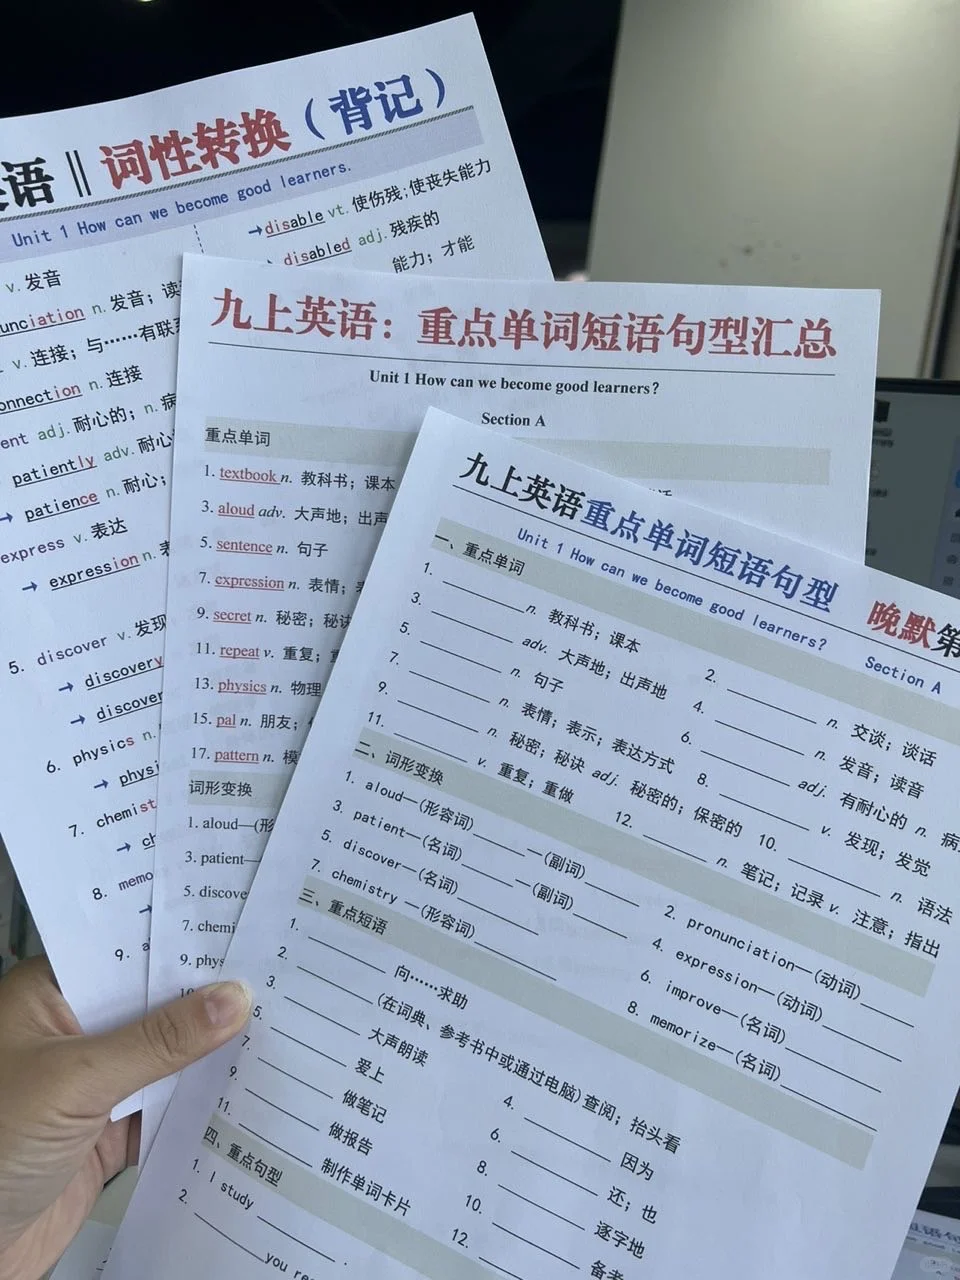 语 || 词性转换（背记）
Unit 1 How can we become good learners.
v. 发音
unciation n. 发音；读
v. 连接；与……有联系
onnection n. 连接
ent adj. 耐心的；n. 病
patiently adv. 耐心
→ patience n. 耐心；
express v. 表达
→ expression n. 表
5. discover v. 发现
→ discovery
→ discover
6. physics n.
→ physi
7. chemist
→ ch
8. memo
→
9. a
→disable vt. 使伤残;使丧失能力
→ disabled adj. 残疾的
能力；才能
九上英语：重点单词短语句型汇总
Unit 1 How can we become good learners?
Section A
重点单词
1. textbook n. 教科书；课本
3. aloud adv. 大声地；出声
5. sentence n. 句子
7. expression n. 表情；表
9. secret n. 秘密；秘诀
11. repeat v. 重复；重
13. physics n. 物理
15. pal n. 朋友；
17. pattern n. 模
词形变换
1. aloud—(形
3. patient—
5. discove
7. chemi
9. phys
10
九上英语重点单词短语句型 晚默第
Unit 1 How can we become good learners? Section A
一、重点单词
1. ________ n. 教科书；课本
2. ________ n. 交谈；谈话
3. ________ adv. 大声地；出声地
4. ________ n. 发音；读音
5. ________ n. 句子
6. ________ adj. 有耐心的 n. 病
7. ________ n. 表情；表示；表达方式
8. ________ v. 发现；发觉
9. ________ n. 秘密；秘诀 adj. 秘密的；保密的
10. ________ n. 语法
11. ________ v. 重复；重做
12. ________ n. 笔记；记录 v. 注意；指出
二、词形变换
1. aloud—(形容词)________—(副词)________
2. pronunciation—(动词)________
3. patient—(名词)________—(副词)________
4. expression—(动词)________
5. discover—(名词)________
6. improve—(名词)________
7. chemistry —(形容词)________
8. memorize—(名词)________
三、重点短语
1. ________ 向……求助
2. ________ (在词典、参考书中或通过电脑)查阅；抬头看
3. ________ 大声朗读
4. ________ 因为
5. ________ 爱上
6. ________ 还；也
7. ________ 做笔记
8. ________ 逐字地
9. ________ 做报告
10. ________ 备考
11. ________ 制作单词卡片
12. ________
四、重点句型
1. I study ________ .
2. ________you re